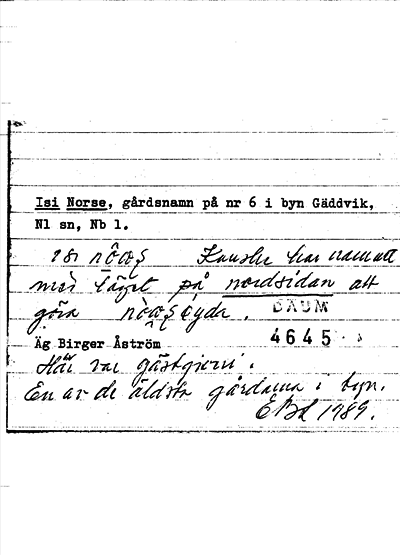 Isi Norse, gårdsnamn på nr 6 i byn Gäddvik,
Nl sn, Nb l.
Kanske har namnet
med läget på nordsidan att
göra
DAUM
4645
Äg Birger Åström
Här var gästgiveri.
En av de äldsta gårdarna i byn.
1989.